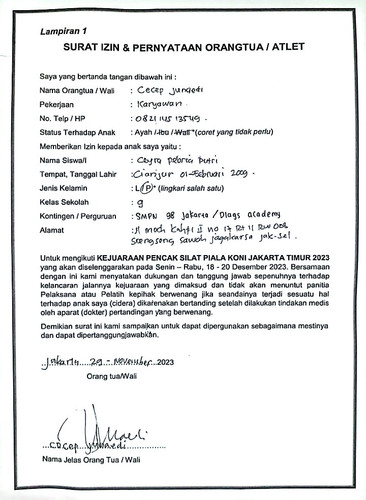 Lampiran 1
SURAT IZIN & PERNYATAAN ORANGTUA / ATLET
Saya yang bertanda tangan dibawah ini :
Nama Orangtua / Wali : Cecep junaedi
Pekerjaan : Karyawan.
No. Telp / HP : 0821 1451 3549.
Status Terhadap Anak : Ayah / Ibu / Wali *(coret yang tidak perlu)
Memberikan Izin kepada anak saya yaitu :
Nama Siswa/I : putri
Tempat, Tanggal Lahir : Cianjur 01-Februari 2009.
Jenis Kelamin : L/P* (lingkari salah satu)
Kelas Sekolah : 9
Kontingen / Perguruan : SMPN 98 jakarta / academy
Alamat : Jl moch kahfi II no 17 Rt 11 RW 008
sawah jagakarsa jak-sel.
Untuk mengikuti KEJUARAAN PENCAK SILAT PIALA KONI JAKARTA TIMUR 2023
yang akan diselenggarakan pada Senin – Rabu, 18 - 20 Desember 2023. Bersamaan
dengan ini kami menyatakan dukungan dan tanggung jawab sepenuhnya terhadap
kelancaran jalannya kejuaraan yang dimaksud dan tidak akan menuntut panitia
Pelaksana atau Pelatih kepihak berwenang jika seandainya terjadi sesuatu hal
terhadap anak saya (cidera) dikarenakan bertanding setelah dilakukan tindakan medis
oleh aparat (dokter) pertandingan yang berwenang.
Demikian surat ini kami sampaikan untuk dapat dipergunakan sebagaimana mestinya
dan dapat dipertanggungjawabkan.
Jakarta 29 - November 2023
Orang tua/Wali
cecep junaedi
Nama Jelas Orang Tua / Wali